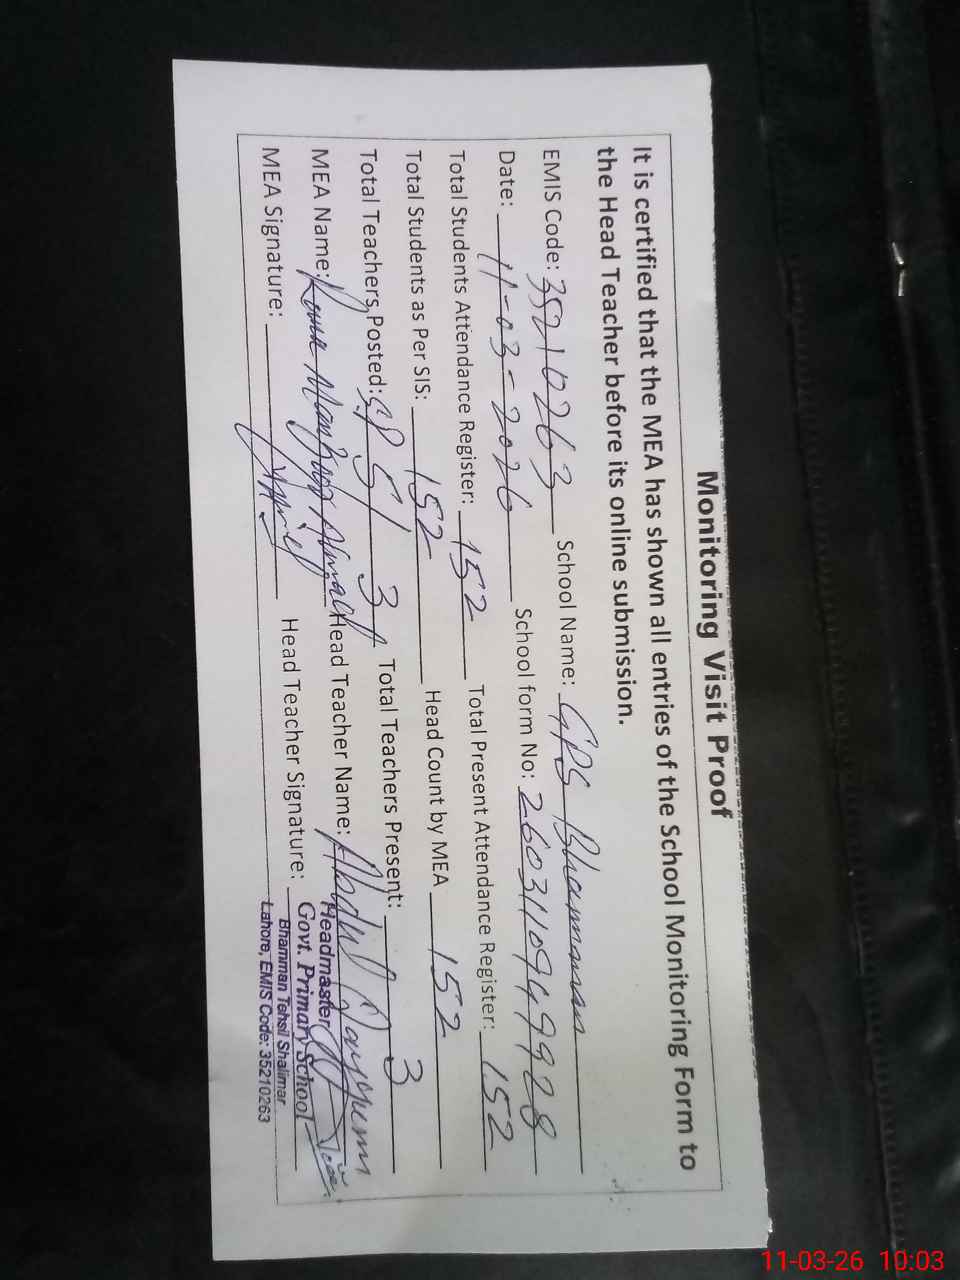 Monitoring Visit Proof
It is certified that the MEA has shown all entries of the School Monitoring Form to
the Head Teacher before its online submission.
EMIS Code: 35210263 School Name: GPS Bhamman
Date: 11-03-2026 School form No: 26031109499928
Total Students Attendance Register: 152 Total Present Attendance Register: 152
Total Students as Per SIS: 152 Head Count by MEA 152
Total Teachers Posted: 3 Total Teachers Present: 3
MEA Name: Head Teacher Name: Abdul Qayyum
MEA Signature: Head Teacher Signature:
Headmaster
Govt. Primary School
Bhamman Tehsil Shalimar
Lahore, EMIS Code: 35210263
11-03-26 10:03